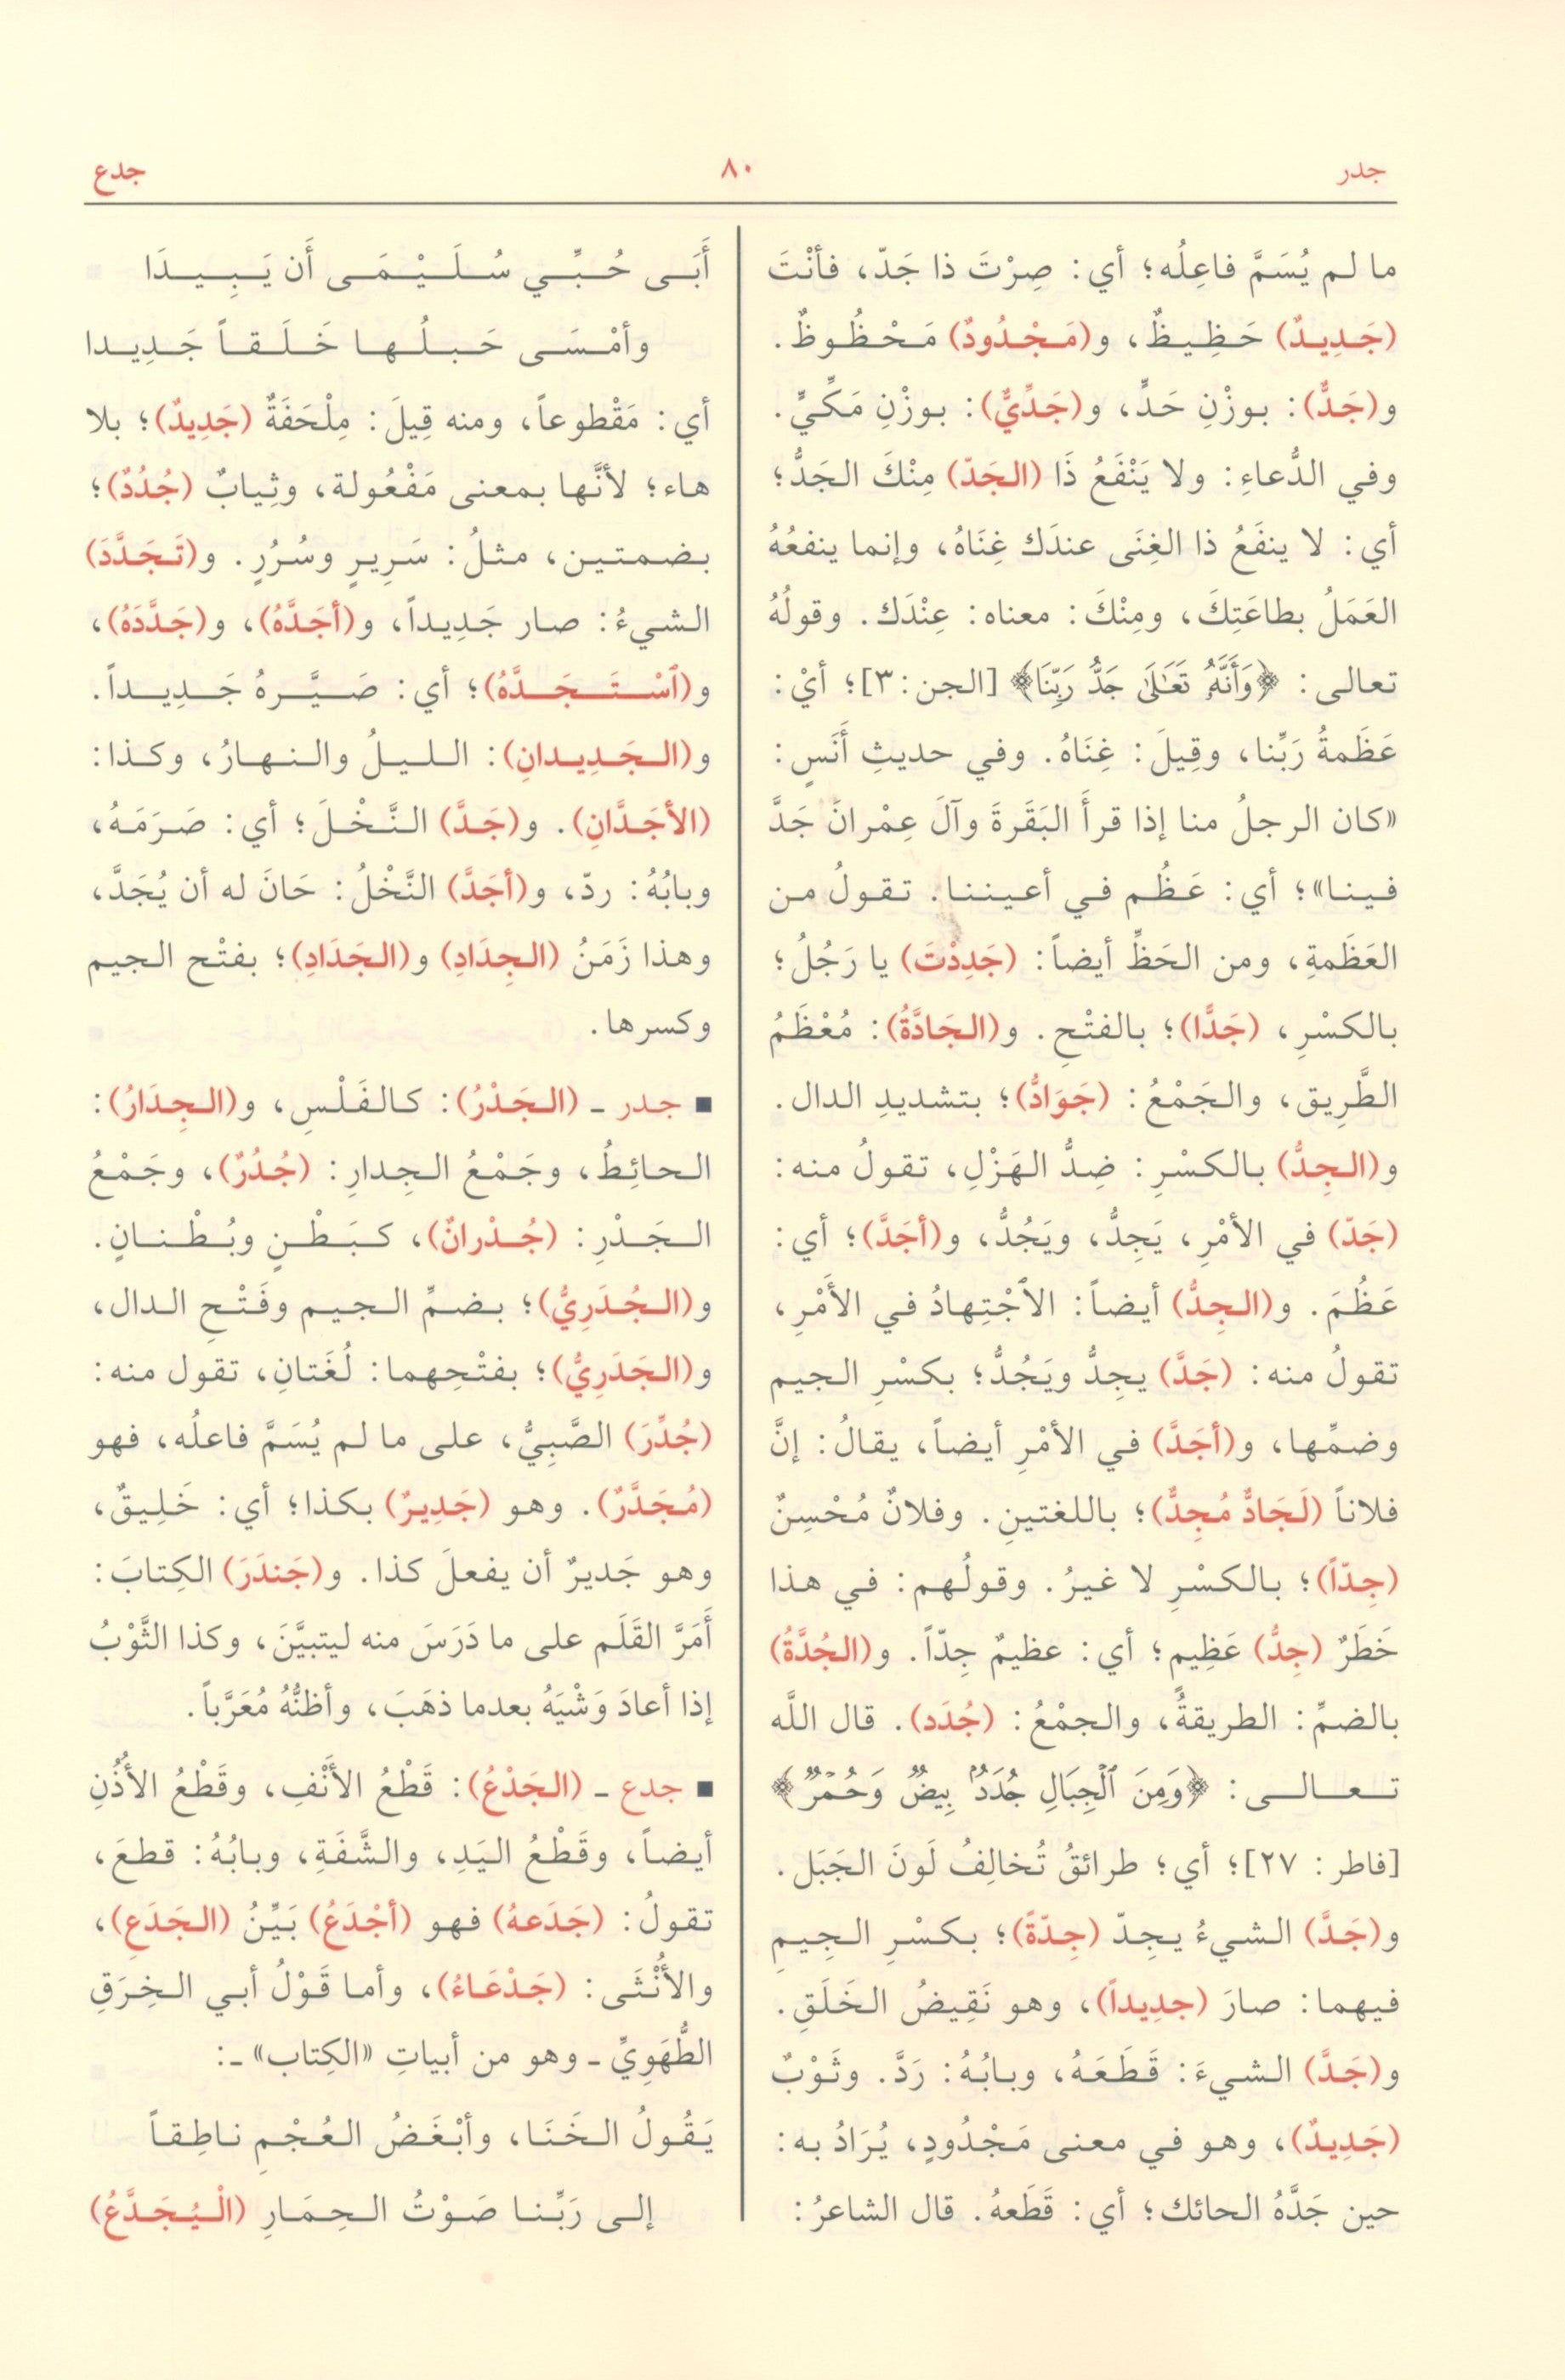 جدر
٨٠
جدع
ما لم يُسَمَّ فاعِلُه؛ أي: صِرْتَ ذا جَدّ، فأنْتَ
(جَدِيدٌ) حَظِيظٌ، و(مَجْدُودٌ) مَحْظُوظٌ.
و(جَدٌّ): بوزْنِ حَدٍّ، و(جَدِّيٌّ): بوزْنِ مَكِّيٍّ.
وفي الدُّعاءِ: ولا يَنْفَعُ ذَا (الجَدّ) مِنْكَ الجَدُّ؛
أي: لا ينفَعُ ذا الغِنَى عندَك غِنَاهُ، وإنما ينفعُهُ
العَمَلُ بطاعَتِكَ، ومِنْكَ: معناه: عِنْدَك. وقولُهُ
تعالى: ﴿وَأَنَّهُۥ تَعَٰلَىٰ جَدُّ رَبِّنَا﴾ [الجن: ٣]؛ أيْ:
عَظَمةُ رَبِّنا، وقِيلَ: غِنَاهُ. وفي حديثِ أَنَسٍ:
«كان الرجلُ منا إذا قرأَ البَقَرةَ وآلَ عِمْرانَ جَدَّ
فينا»؛ أي: عَظُم في أعيننا. تقولُ من
العَظَمةِ، ومن الحَظِّ أيضاً: (جَدِدْتَ) يا رَجُلُ؛
بالكسْرِ، (جَدًّا)؛ بالفتْحِ. و(الجَادَّةُ): مُعْظَمُ
الطَّرِيق، والجَمْعُ: (جَوَادُّ)؛ بتشديدِ الدال.
و(الجِدُّ) بالكسْرِ: ضِدُّ الهَزْلِ، تقولُ منه:
(جَدّ) في الأمْرِ، يَجِدُّ، ويَجُدُّ، و(أجَدَّ)؛ أي:
عَظُمَ. و(الجِدُّ) أيضاً: الاٱجْتِهادُ في الأَمْرِ،
تقولُ منه: (جَدَّ) يجِدُّ ويَجُدُّ؛ بكسْرِ الجيم
وضمِّها، و(أجَدَّ) في الأمْرِ أيضاً، يقالُ: إنَّ
فلاناً (لَجَادٌّ مُجِدٌّ)؛ باللغتينِ. وفلانٌ مُحْسِنٌ
(جِدّاً)؛ بالكسْرِ لا غيرُ. وقولُهم: في هذا
خَطَرٌ (جِدُّ) عَظِيم؛ أي: عظيمٌ جِدّاً. و(الجُدَّةُ)
بالضمِّ: الطريقةُ، والجمْعُ: (جُدَد). قال اللَّه
تعالى: ﴿وَمِنَ ٱلْجِبَالِ جُدَدٌۢ بِيضٌ وَحُمْرٌ﴾
[فاطر: ٢٧]؛ أي؛ طرائقُ تُخالِفُ لَونَ الجَبَل.
و(جَدَّ) الشيءُ يجِدّ (جِدّةً)؛ بكسْرِ الجِيمِ
فيهما: صارَ (جدِيداً)، وهو نَقِيضُ الخَلَقِ.
و(جَدَّ) الشيءَ: قَطَعَهُ، وبابُهُ: رَدَّ. وثَوْبٌ
(جَدِيدٌ)، وهو في معنى مَجْدُودٍ، يُرَادُ به:
حين جَدَّهُ الحائك؛ أي: قَطَعهُ. قال الشاعرُ:
أَبَى حُبِّي سُلَيْمَى أَن يَبِيدَا
وأمْسَى حَبلُها خَلَقاً جَدِيدا
أي: مَقْطوعاً، ومنه قِيلَ: مِلْحَفَةٌ (جَدِيدٌ)؛ بلا
هاء؛ لأنَّها بمعنى مَفْعُولة، وثِيابٌ (جُدُدٌ)؛
بضمتين، مثلُ: سَرِيرٍ وسُرُرٍ. و(تَجَدَّدَ)
الشيءُ: صار جَدِيداً، و(أجَدَّهُ)، و(جَدَّدَهُ)،
و(ٱسْتَجَدَّهُ)؛ أي: صَيَّرهُ جَدِيداً.
و(الجَدِيدانِ): الليلُ والنهارُ، وكذا:
(الأجَدَّانِ). و(جَدَّ) النَّخْلَ؛ أي: صَرَمَهُ،
وبابُهُ: ردّ، و(أجَدَّ) النَّخْلُ: حَانَ له أن يُجَدَّ،
وهذا زَمَنُ (الجِدَادِ) و(الجَدَادِ)؛ بفتْح الجيم
وكسرها.
■ جدر ـ (الجَدْرُ): كالفَلْسِ، و(الجِدَارُ):
الحائِطُ، وجَمْعُ الجِدارِ: (جُدُرٌ)، وجَمْعُ
الجَدْرِ: (جُدْرانٌ)، كبَطْنٍ وبُطْنانٍ.
و(الجُدَرِيُّ)؛ بضمِّ الجيم وفَتْحِ الدال،
و(الجَدَرِيُّ)؛ بفتْحِهما: لُغَتانِ، تقول منه:
(جُدِّرَ) الصَّبِيُّ، على ما لم يُسَمَّ فاعلُه، فهو
(مُجَدَّرٌ). وهو (جَدِيرٌ) بكذا؛ أي: خَلِيقٌ،
وهو جَديرٌ أن يفعلَ كذا. و(جَندَرَ) الكِتابَ:
أَمَرَّ القَلَم على ما دَرَسَ منه ليتبيَّنَ، وكذا الثَّوْبُ
إذا أعادَ وَشْيَهُ بعدما ذهَبَ، وأظنُّهُ مُعَرَّباً.
■ جدع ـ (الجَدْعُ): قَطْعُ الأَنْفِ، وقَطْعُ الأُذُنِ
أيضاً، وقَطْعُ اليَدِ، والشَّفَةِ، وبابُهُ: قطعَ،
تقولُ: (جَدَعهُ) فهو (أجْدَعُ) بَيِّنُ (الجَدَعِ)،
والأُنْثَى: (جَدْعَاءُ)، وأما قَوْلُ أبي الخِرَقِ
الطُّهَوِيِّ ـ وهو من أبياتِ «الكِتاب» ـ:
يَقُولُ الخَنَا، وأبْغَضُ العُجْمِ ناطِقاً
إلى رَبِّنا صَوْتُ الحِمَارِ (الْيُجَدَّعُ)